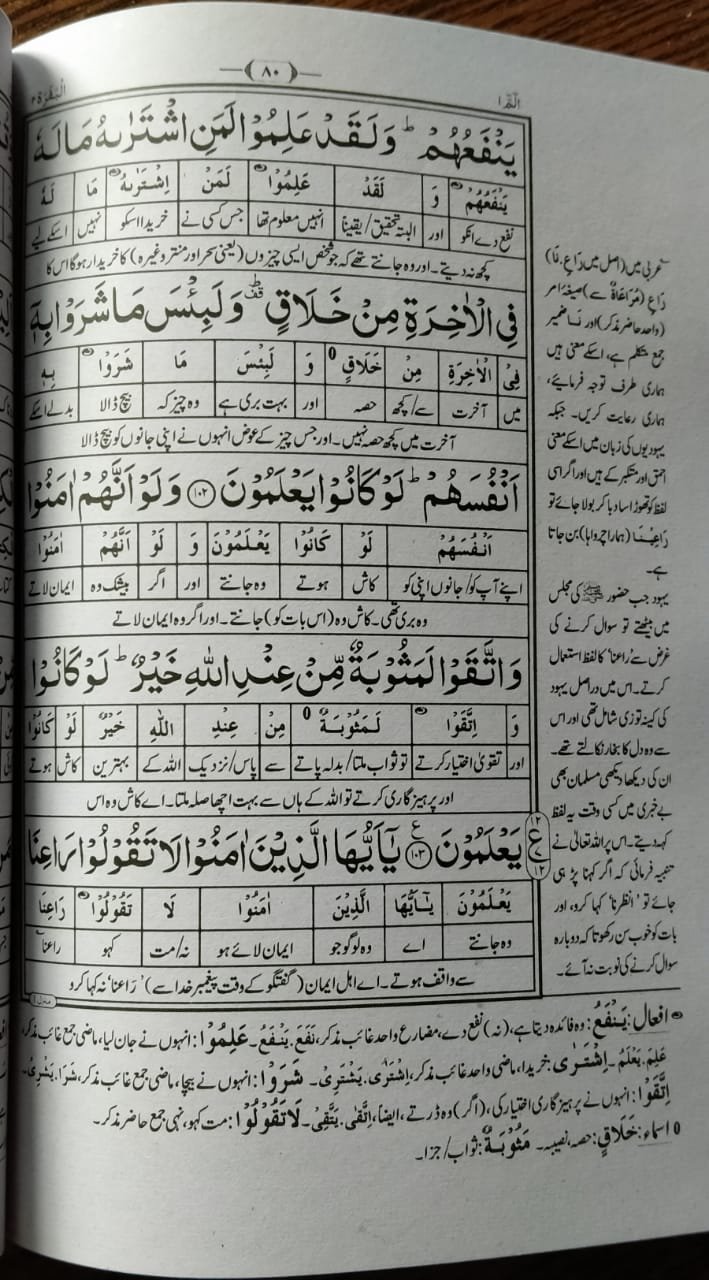 البقرة ٢
﴿٨٠﴾
الٓمّٓ ١
يَنْفَعُهُمْ ؕ وَلَقَدْ عَلِمُوْا لَمَنِ اشْتَرٰىهُ مَا لَهٗ
يَنْفَعُهُمْ وَ لَقَدْ عَلِمُوْا لَمَنْ اِشْتَرٰىهُ مَا لَهٗ
نفع دے انکو اور البتہ تحقیق/یقیناً انہیں معلوم تھا جس کسی نے خریدا اسکو نہیں اسکے لیے
کچھ نہ دیتے۔ اور وہ جانتے تھے کہ جو شخص ایسی چیزوں (یعنی سحر اور منتر وغیرہ) کا خریدار ہوگا اس کا
فِي الْاٰخِرَةِ مِنْ خَلَاقٍ ؕ وَلَبِئْسَ مَا شَرَوْا بِهٖۤ
فِي الْاٰخِرَةِ مِنْ خَلَاقٍ وَ لَبِئْسَ مَا شَرَوْا بِهٖ
میں آخرت سے/کچھ حصہ اور بہت بری ہے وہ چیز کہ بیچ ڈالا بدلے اسکے
آخرت میں کچھ حصہ نہیں۔ اور جس چیز کے عوض انہوں نے اپنی جانوں کو بیچ ڈالا
اَنْفُسَهُمْ ؕ لَوْ كَانُوْا يَعْلَمُوْنَ ﴿۱۰۲﴾ وَلَوْ اَنَّهُمْ اٰمَنُوْا
اَنْفُسَهُمْ لَوْ كَانُوْا يَعْلَمُوْنَ وَ لَوْ اَنَّهُمْ اٰمَنُوْا
اپنے آپ کو/جانوں اپنی کو کاش ہوتے وہ جانتے اور اگر بیشک وہ ایمان لاتے
وہ بری تھی۔ کاش وہ (اس بات کو) جانتے۔ اور اگر وہ ایمان لاتے
وَاتَّقَوْا لَمَثُوْبَةٌ مِّنْ عِنْدِ اللّٰهِ خَيْرٌ ؕ لَوْ كَانُوْا
وَ اِتَّقَوْا لَمَثُوْبَةٌ مِنْ عِنْدِ اللّٰهِ خَيْرٌ لَوْ كَانُوْا
اور تقویٰ اختیار کرتے تو ثواب ملتا/بدلہ پاتے سے پاس/نزدیک اللہ کے بہترین کاش ہوتے
اور پرہیزگاری کرتے تو اللہ کے ہاں سے بہت اچھا صلہ ملتا۔ اے کاش وہ اس
يَعْلَمُوْنَ ﴿۱۰۳﴾ يٰۤاَيُّهَا الَّذِيْنَ اٰمَنُوْا لَا تَقُوْلُوْا رَاعِنَا
يَعْلَمُوْنَ يٰۤاَيُّهَا الَّذِيْنَ اٰمَنُوْا لَا تَقُوْلُوْا رَاعِنَا
وہ جانتے اے وہ لوگو جو ایمان لائے ہو نہ/مت کہو راعنا
سے واقف ہوتے۔ اے اہل ایمان (گفتگو کے وقت پیغمبر خدا سے) 'راعنا' نہ کہا کرو
۱۲
ع
۱۲
عربی میں (اصل میں رَاعِ، نَا)
رَاعِ (مُرَاعَاۃٌ سے) صیغہ امر
(واحد حاضر مذکر) اور نَا ضمیر
جمع متکلم ہے، اسکے معنی ہیں
ہماری طرف توجہ فرمایئے،
ہماری رعایت کریں۔ جبکہ
یہودیوں کی زبان میں اسکے معنی
احمق اور متکبر کے ہیں اور اگر اسی
لفظ کو تھوڑا سا دبا کر بولا جائے تو
رَاعِیْنَا (ہمارا چرواہا) بن جاتا
ہے۔
یہود جب حضور ﷺ کی مجلس
میں بیٹھتے تو سوال کرنے کی
غرض سے 'راعنا' کا لفظ استعمال
کرتے۔ اس میں دراصل یہود
کی کینہ توزی شامل تھی اور اس
سے وہ دل کا بخار نکالتے تھے۔
ان کی دیکھا دیکھی مسلمان بھی
بے خبری میں کسی وقت یہ لفظ
کہہ دیتے۔ اس پر اللہ تعالیٰ نے
تنبیہ فرمائی کہ اگر کہنا پڑ ہی
جائے تو 'انظرنا' کہا کرو، اور
بات کو خوب سن رکھو تا کہ دوبارہ
سوال کرنے کی نوبت نہ آئے۔
منزل ۱
افعال: يَنْفَعُ: وہ فائدہ دیتا ہے، (نہ) نفع دے، مضارع واحد غائب مذکر، نَفَعَ۔ يَنْفَعُ۔ عَلِمُوْا: انہوں نے جان لیا، ماضی جمع غائب مذکر،
عَلِمَ۔ يَعْلَمُ۔ اِشْتَرٰى: خریدا، ماضی واحد غائب مذکر، اِشْتَرٰى۔ يَشْتَرِىْ۔ شَرَوْا: انہوں نے بیچا، ماضی جمع غائب مذکر، شَرَا۔ يَشْرِىْ۔
اِتَّقَوْا: انہوں نے پرہیزگاری اختیار کی، (اگر) وہ ڈرتے، ایضاً، اِتَّقٰى۔ يَتَّقِىْ۔ لَا تَقُوْلُوْا: مت کہو، نہی جمع حاضر مذکر۔
اسماء: خَلَاقٍ: حصہ، نصیبہ۔ مَثُوْبَةٌ: ثواب/جزا۔